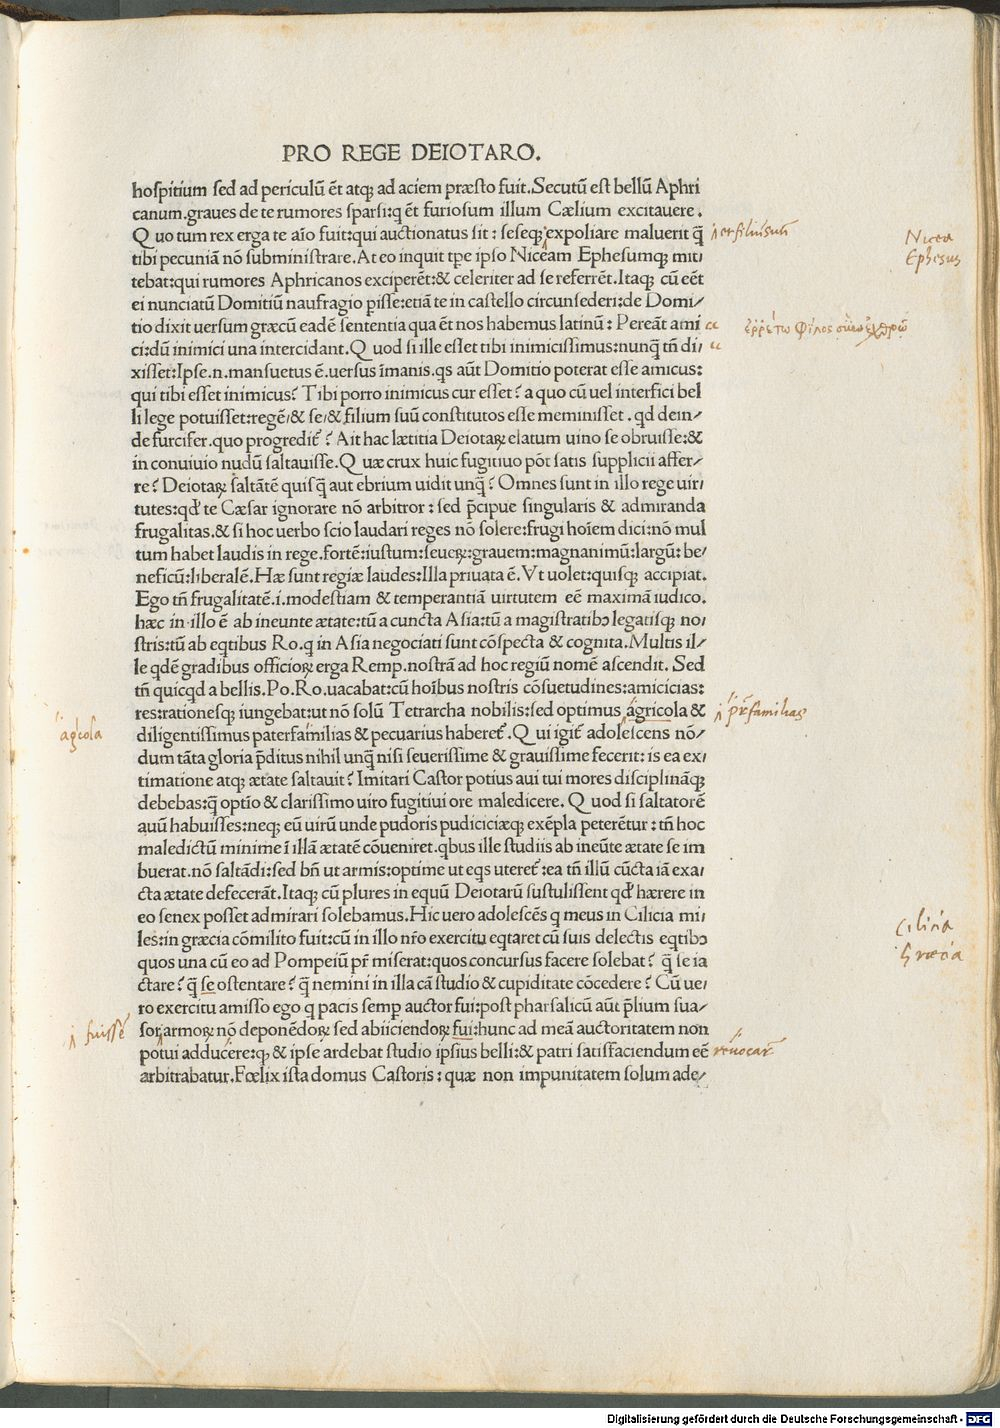 PRO REGE DEIOTARO.
hospitium sed ad periculū ēt atq; ad aciem præsto fuit. Secutū est bellū Aphri
canum. graues de te rumores sparsi: q ēt furiosum illum Cælium excitauere.
Quo tum rex erga te aīo fuit: qui auctionatus sit: seseq; expoliare maluerit q̄
et filiū suū
tibi pecuniā nō subministrare. At eo inquit tpe ipso Niceam Ephesumq; mit
Nicea
Ephesus
tebat: qui rumores Aphricanos exciperēt: & celeriter ad se referrēt. Itaq; cū eēt
ei nunciatū Domitiū naufragio pisse: etiā te in castello circunsederi: de Domi/
tio dixit uersum græcū eadē sententia qua ēt nos habemus latinū: Pereāt ami
ἐρρέτω φίλος
ci: dū inimici una intercidant. Quod si ille esset tibi inimicissimus: nunq̄ tn̄ di/
xisset: Ipse .n. mansuetus ē. uersus īmanis. qs aūt Domitio poterat esse amicus:
qui tibi esset inimicus? Tibi porro inimicus cur esset? a quo cū uel interfici bel
li lege potuisset: regē/ & se/ & filium suū constitutos esse meminisset. qd dein/
de furcifer. quo progredit̄? Ait hac lætitia Deiotaꝝ elatum uino se obruisse: &
in conuiuio nudū saltauisse. Quæ crux huic fugitiuo pōt satis supplicii affer/
re? Deiotaꝝ saltātē quisq̄ aut ebrium uidit unq̄? Omnes sunt in illo rege uir/
tutes: qd̄ te Cæsar ignorare nō arbitror: sed p̄cipue singularis & admiranda
frugalitas. & si hoc uerbo scio laudari reges nō solere: frugi hoīem dici: nō mul
tum habet laudis in rege. fortē: iustum: seueꝝ: grauem: magnanimū: largū: be/
neficū: liberalē. Hæ sunt regiæ laudes: Illa priuata ē. Vt uolet: quisq; accipiat.
Ego tn̄ frugalitatē .i. modestiam & temperantiā uirtutem eē maximā iudico.
hæc in illo ē ab ineunte ætate: tū a cuncta Asia: tū a magistratibꝰ legatisq; no/
stris: tū ab eqtibus Ro. q in Asia negociati sunt cōspecta & cognita. Multis il/
le qdē gradibus officioꝝ erga Remp. nostrā ad hoc regiū nomē ascendit. Sed
tn̄ quicqd a bellis. Po. Ro. uacabat: cū hoībus nostris cōsuetudines: amicicias:
res: rationesq; iungebat: ut nō solū Tetrarcha nobilis: sed optimus agricola &
pr̄familias
agricola
diligentissimus paterfamilias & pecuarius haberet̄. Qui igit̄ adolescens nō/
dum tāta gloria p̄ditus nihil unq̄ nisi seuerissime & grauissime fecerit: is ea ex/
timatione atq; ætate saltauit? Imitari Castor potius aui tui mores disciplināq;
debebas: q̄ optīo & clarissimo uiro fugitiui ore maledicere. Quod si saltatorē
auū habuisses: neq; eū uirū unde pudoris pudiciciæq; exēpla peterētur: tn̄ hoc
maledictū minime ī illā ætatē cōueniret. qbus ille studiis ab ineūte ætate se im
buerat. nō saltādi: sed bn̄ ut armis: optime ut eqs uteret̄: ea tn̄ illū cūcta iā exa/
cta ætate defecerāt. Itaq; cū plures in equū Deiotarū sustulissent qd̄ hærere in
eo senex posset admirari solebamus. Hic uero adolescēs q meus in Cilicia mi/
Cilicia
les: in græcia cōmilito fuit: cū in illo nr̄o exercitu eqtaret cū suis delectis eqtibꝰ
Græcia
quos una cū eo ad Pompeiū pr̄ miserat: quos concursus facere solebat? q̄ se ia
ctare? q̄ se ostentare? q̄ nemini in illa cā studio & cupiditate cōcedere? Cū ue/
ro exercitu amisso ego q pacis semp auctor fui: post pharsalicū aūt p̄lium sua/
fuisse
sor armoꝝ nō deponēdoꝝ sed abiiciendoꝝ fui: hunc ad meā auctoritatem non
potui adducere: q; & ipse ardebat studio ipsius belli: & patri satisfaciendum eē
reuocare
arbitrabatur. Fœlix ista domus Castoris: quæ non impunitatem solum ade/
Digitalisierung gefördert durch die Deutsche Forschungsgemeinschaft - DFG